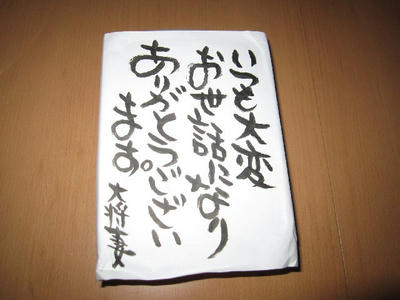 いつも大変
お世話になり
ありがとうござい
ます。
大将妻